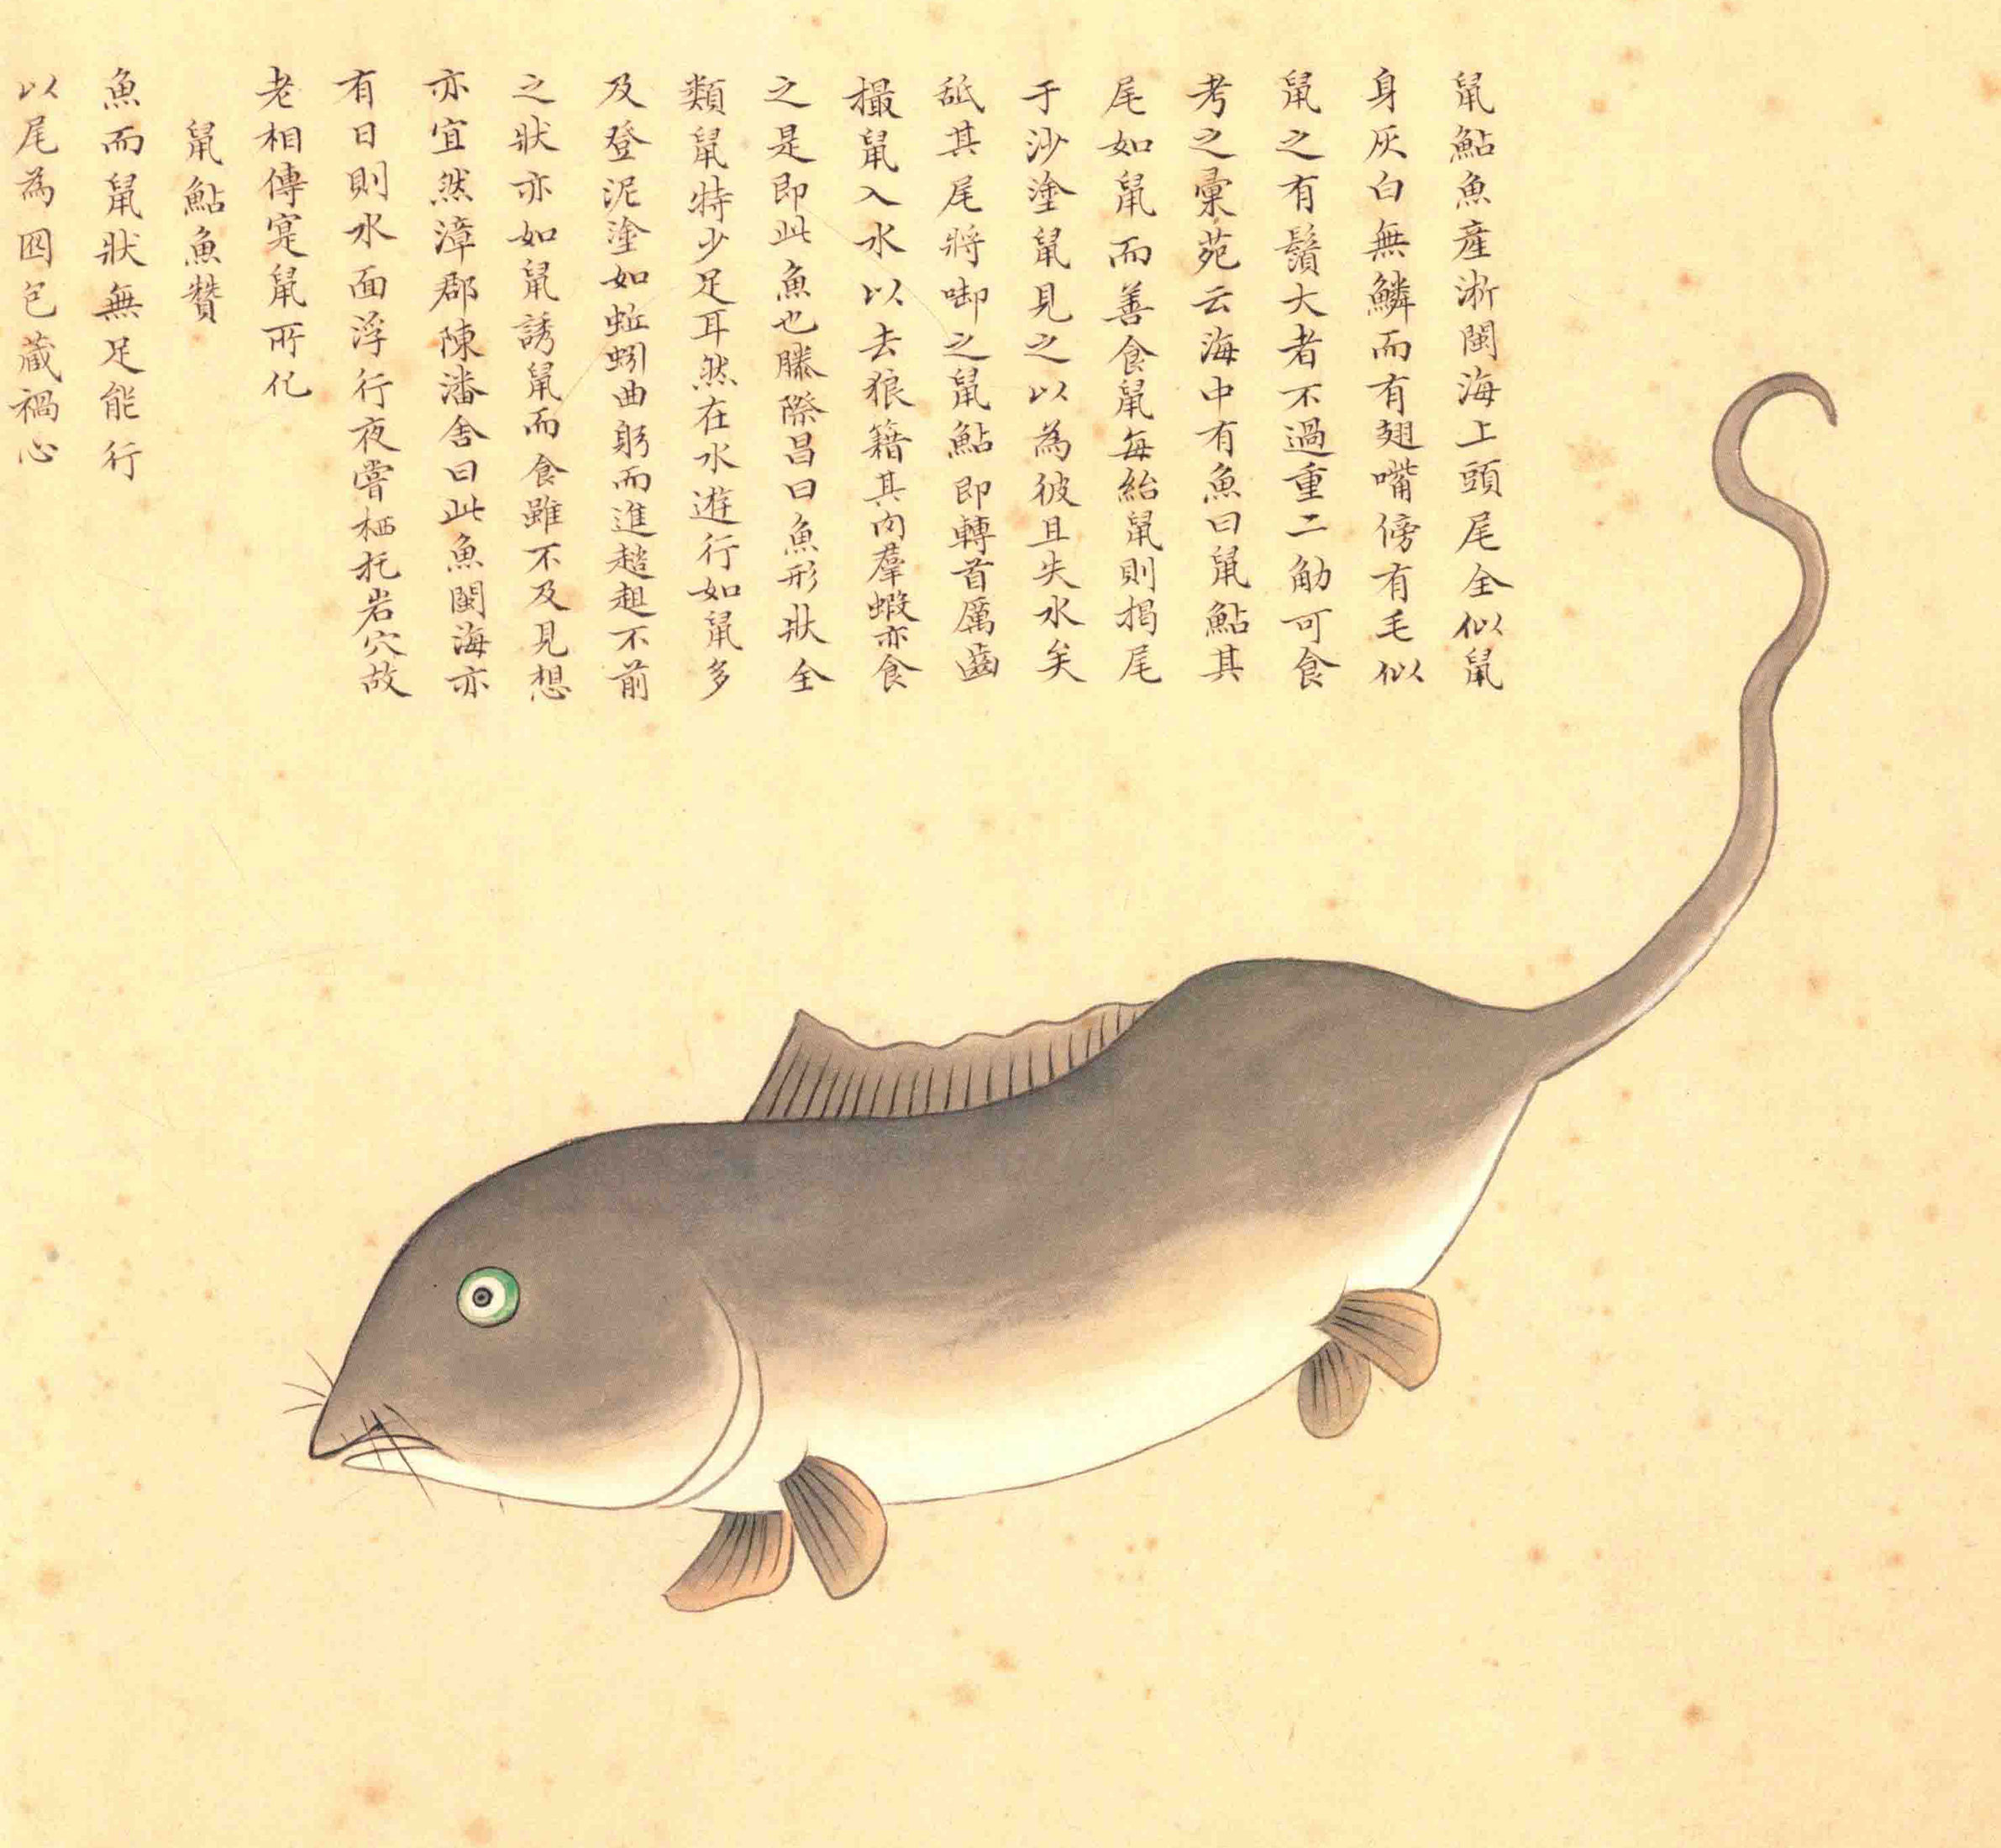 鼠鮎魚產浙閩海上頭尾全似鼠
身灰白無鱗而有翅嘴傍有毛似
鼠之有鬚大者不過重二觔可食
考之彙苑云海中有魚曰鼠鮎其
尾如鼠而善食鼠每紿鼠則揭尾
于沙塗鼠見之以為彼且失水矣
舐其尾將啣之鼠鮎即轉首厲齒
撮鼠入水以去狼籍其肉羣蝦亦食
之是即此魚也滕際昌曰魚形狀全
類鼠特少足耳然在水遊行如鼠多
及登泥塗如蚯蚓曲躬而進趦趄不前
之狀亦如鼠誘鼠而食雖不及見想
亦宜然漳郡陳潘舍曰此魚閩海亦
有日則水面浮行夜嘗栖托岩穴故
老相傳寔鼠所化
鼠鮎魚贊
魚而鼠狀無足能行
以尾為囮包藏禍心